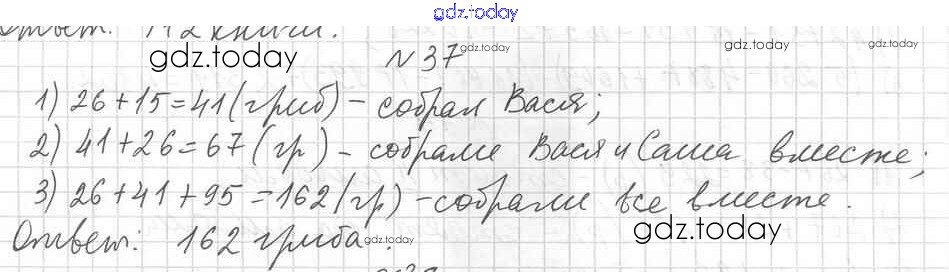 gdz.today
Ответ: 112 книги.
gdz.today
gdz.today
gdz.today
№ 37
gdz.today
1) 26 + 15 = 41 (гриб) - собрал Вася;
2) 41 + 26 = 67 (гр) - собрали Вася и Саша вместе;
3) 26 + 41 + 95 = 162 (гр) - собрали все вместе.
Ответ: 162 гриба.
gdz.today
gdz.today